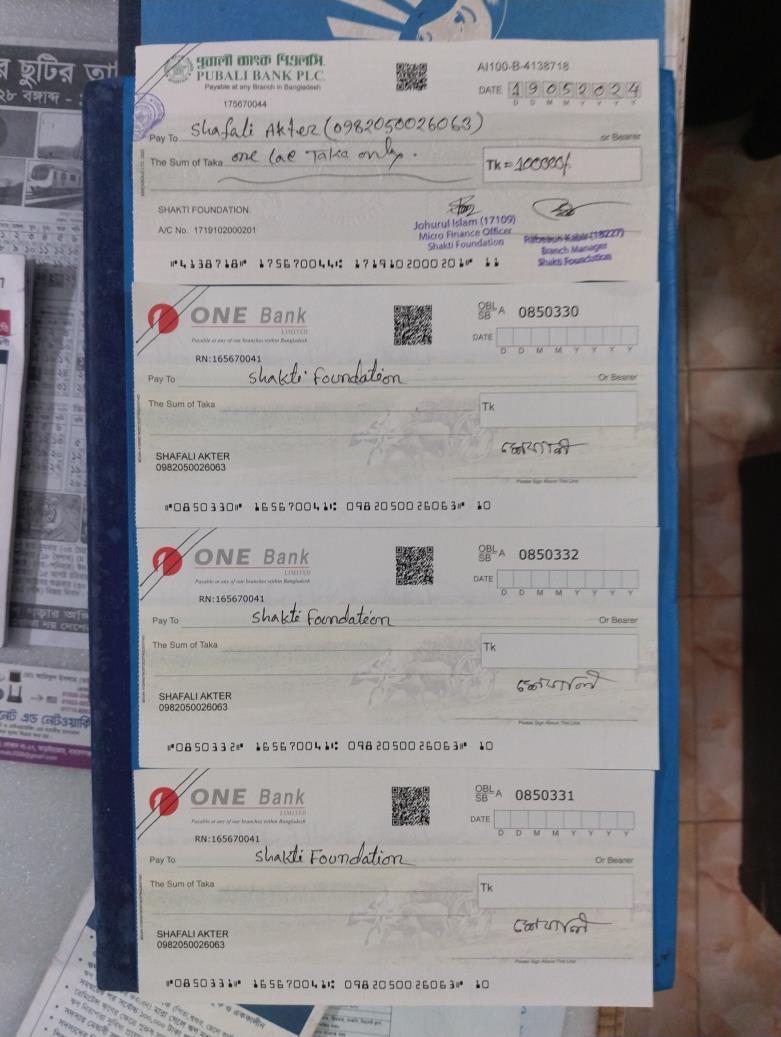 পূবালী ব্যাংক পিএলসি.
PUBALI BANK PLC.
Payable at any Branch in Bangladesh
175670044
AI100-B-4138718
DATE 19052024
D D M M Y Y Y Y
Pay To Shafali Akter (0982050026063) or Bearer
The Sum of Taka one lac Taka only.
Tk = 100000/
SHAKTI FOUNDATION.
A/C No. 1719102000201
Johurul Islam (17109)
Micro Finance Officer
Shakti Foundation
Kabir (18227)
Branch Manager
Shakti Foundation
⑈4138718⑈ 175670044⑆ 1719102000201⑈ 11
ONE Bank
LIMITED
Payable at any of our branches within Bangladesh
RN:165670041
OBL SB A 0850330
DATE
D D M M Y Y Y Y
Pay To Shakti Foundation Or Bearer
The Sum of Taka
Tk
SHAFALI AKTER
0982050026063
শেফালী
Please Sign Above This Line
⑈0850330⑈ 165670041⑆ 0982050026063⑈ 10
ONE Bank
LIMITED
Payable at any of our branches within Bangladesh
RN:165670041
OBL SB A 0850332
DATE
D D M M Y Y Y Y
Pay To Shakti Foundation Or Bearer
The Sum of Taka
Tk
SHAFALI AKTER
0982050026063
শেফালী
Please Sign Above This Line
⑈0850332⑈ 165670041⑆ 0982050026063⑈ 10
ONE Bank
LIMITED
Payable at any of our branches within Bangladesh
RN:165670041
OBL SB A 0850331
DATE
D D M M Y Y Y Y
Pay To Shakti Foundation Or Bearer
The Sum of Taka
Tk
SHAFALI AKTER
0982050026063
শেফালী
Please Sign Above This Line
⑈0850331⑈ 165670041⑆ 0982050026063⑈ 10